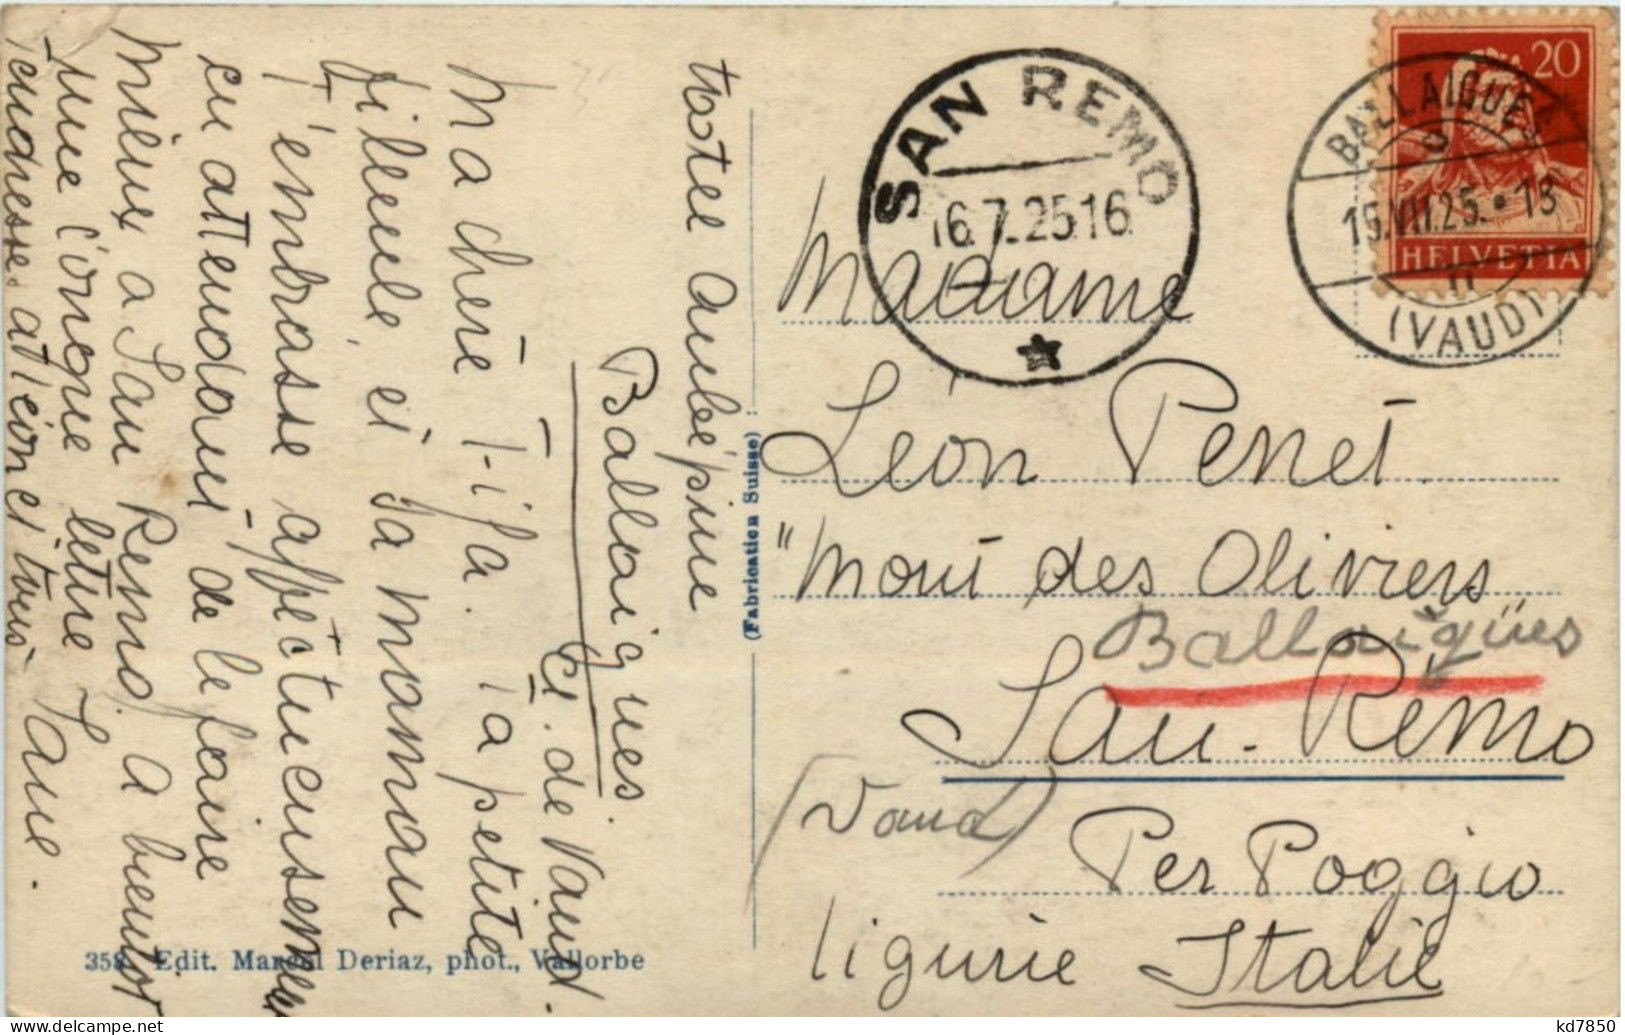 Hotel Aubépine
Ballaigues
Ct. de Vaud.
Ma chère Tita. Ta petite
filleule et sa maman
t'embrasse affectueusement
en attendant de le faire
mieux a San Remo. a bientot
une longue lettre
tendresse Jane.
358 Edit. Marcel Deriaz, phot., Vallorbe
(Fabrication Suisse)
SAN REMO
16.7.25 16
20
HELVETIA
BALLAIGUES
15.VII.25.•18
(VAUD)
Madame
Léon Penet
"Mont des Oliviers
Ballaigües
San-Remo
(Vaud)
Per Poggio
ligurie Italie
kd7850